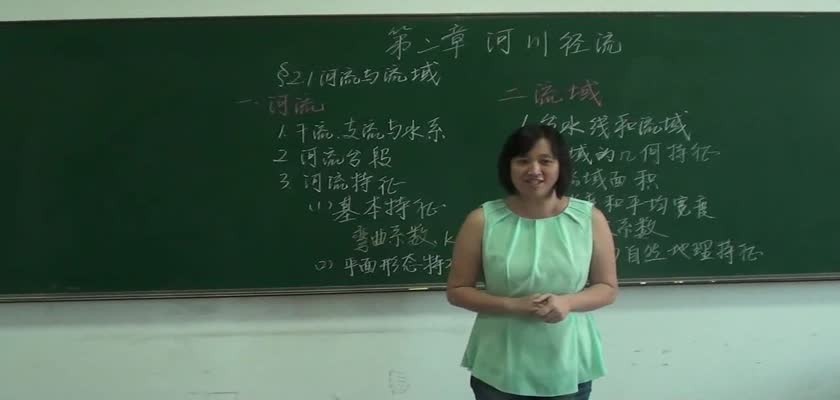 第二章 河川径流
§2.1 河流与流域
一. 河流
1. 干流、支流与水系
2. 河流分段
3. 河流特征
(1) 基本特征
弯曲系数、K
(2) 平面形态特
二 流域
水线和流域
域的几何特征
域面积
和平均宽度
系数
自然地理特征